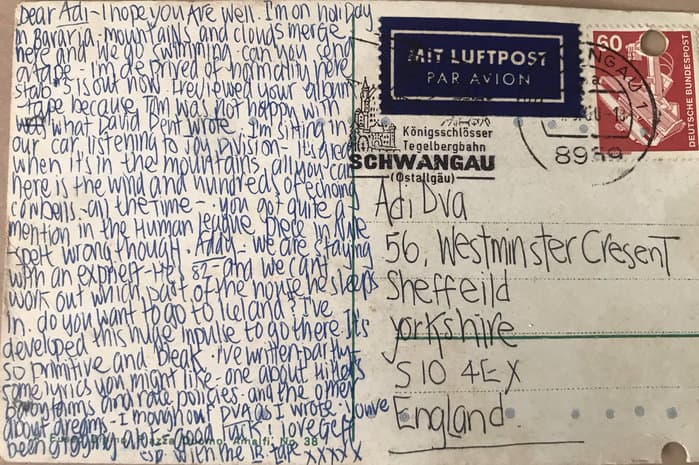 Dear Adi - I hope you Are well. I'm on holiDay
in Bavaria - mountains and clouds merge
here and we go swimming. can you send
a tape -
out now I reviewed your album
tape because Tam was not happy with
what David Bett wrote. I'm sitting in
our car listening to in Division - it's great
when it's in the mountains all you can
here is the wind and hundred of echoing
cowbells - all the time - you got quite a
mention in the Human league piece in
spelt wrong though. Addy. We are staying
with an exphert - He's 82 - and we can't
work out which part of the house he sleeps
in. do you want to go to iceland I I've
developed this huge inpulse to go there It's
so primitive and Bleak. i've written - partly -
some lyrics you might like - one about Hitlers
mountains and race policies - and the other
about dreams - I thought of DVA as I wrote. You've
been gigging a lot. good luck! love Geff
with the tape xxxxx
Piazza Duomo, Amalfi, No 38
MIT LUFTPOST
PAR AVION
60
DEUTSCHE BUNDESPOST
Königsschlösser
Tegelbergbahn
SCHWANGAU
(Ostallgäu)
8959
Adi Dva
56, Westminster Cresent
Sheffeild
yorkshire
S10 4EX
England